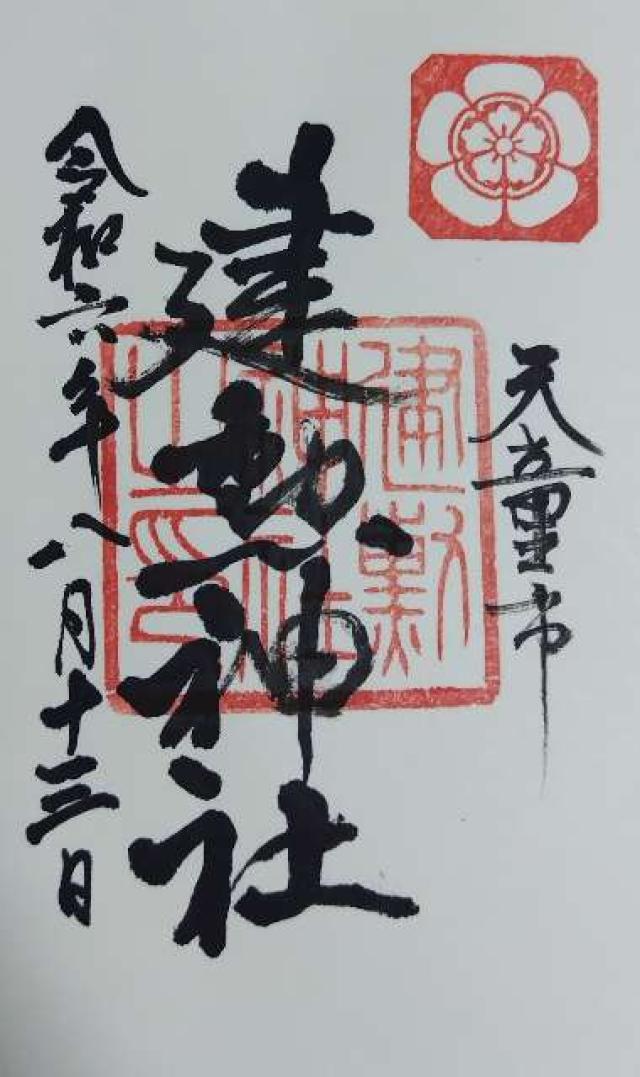 天童市
建勲神社
令和六年八月十三日
建勲
神社
之印